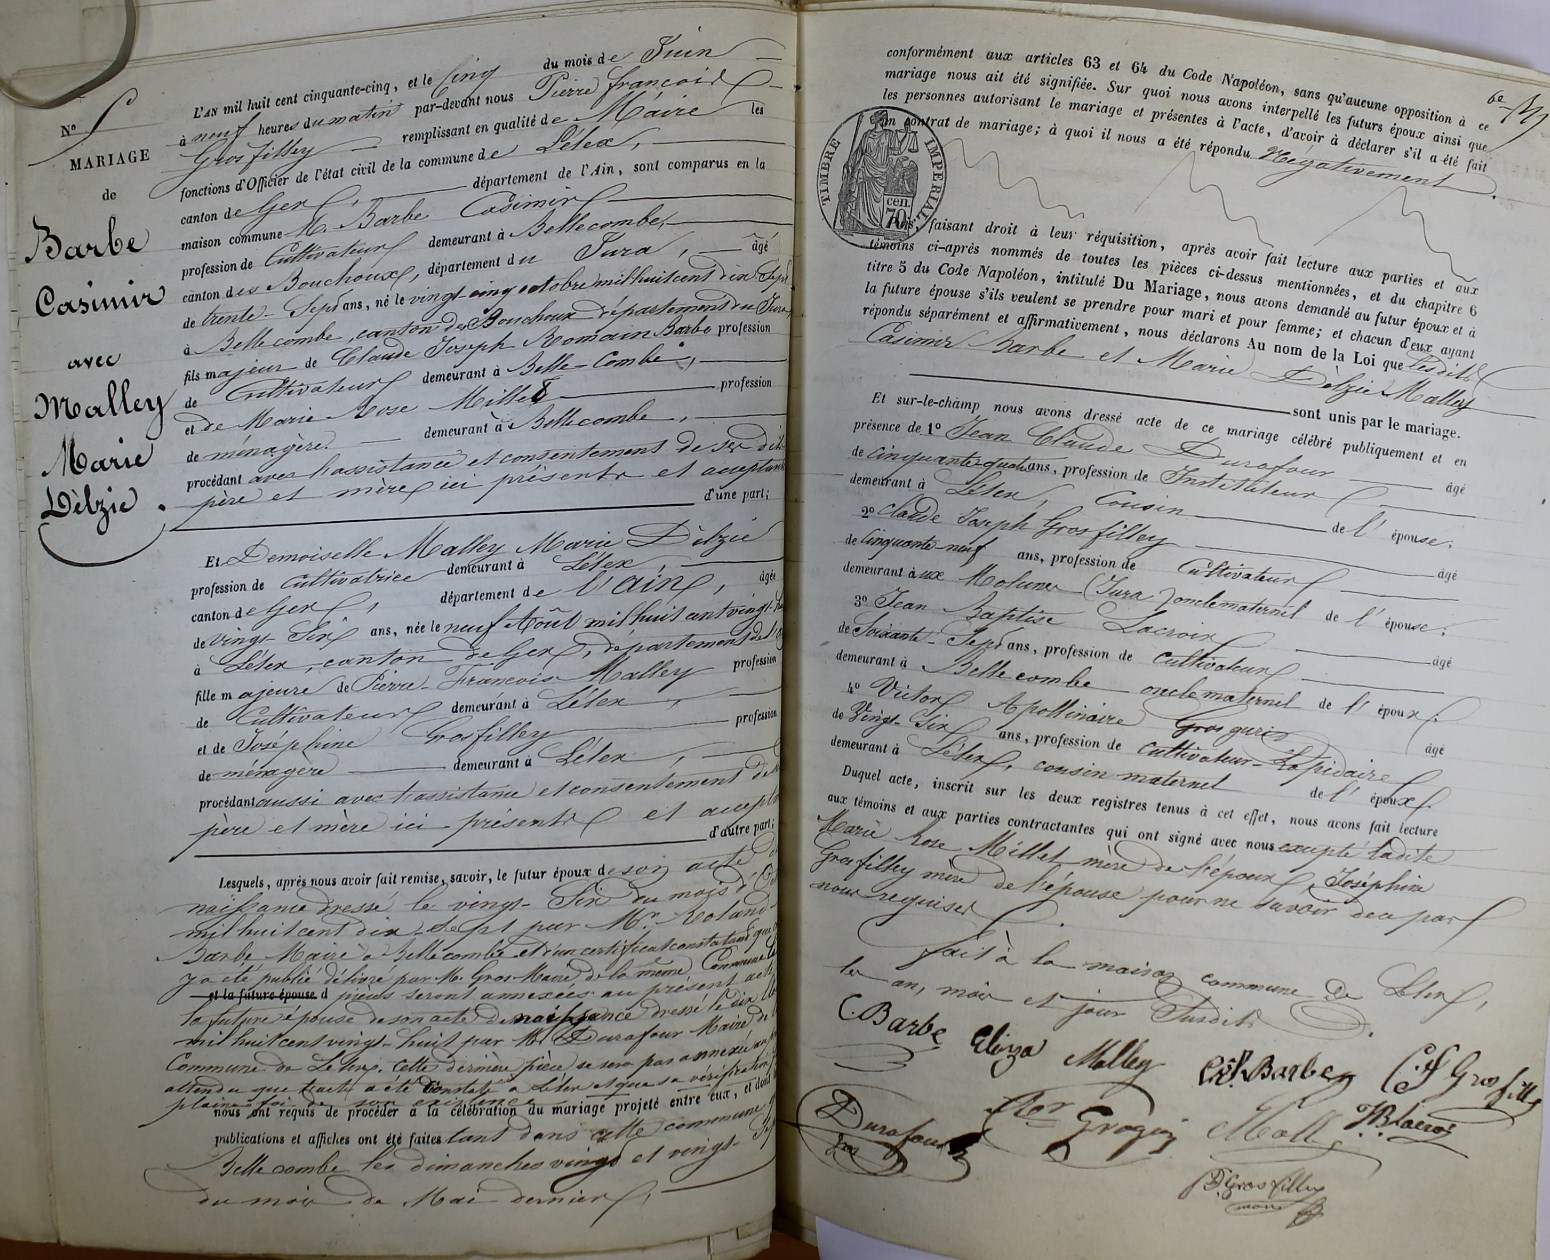 N° 5
MARIAGE
de
Barbe
Casimir
avec
Malley
Marie
Délzie.
L'AN mil huit cent cinquante-cinq, et le Cinq du mois de Juin
à neuf heures du matin par-devant nous Pierre françois
Grosfilley remplissant en qualité de Maire les
fonctions d'Officier de l'état civil de la commune de Lélex,
canton de Gex, département de l'Ain, sont comparus en la
maison commune M. Barbe Casimir
profession de Cultivateur demeurant à Bellecombe,
canton des Bouchoux, département du Jura, âgé
de trente-Sept ans, né le vingt-cinq octobre mil huit cent dix Sept
à Belle combe, canton des Bouchoux département du Jura
fils majeur de Claude Joseph Romain Barbe profession
de Cultivateur demeurant à Belle-Combe,
et de Marie Rose Millet profession
de ménagère demeurant à Bellecombe,
procédant avec l'assistance et consentement de ses dits
père et mère ici présents et acceptant
d'une part;
Et Demoiselle Malley Marie Délzie
profession de Cultivatrice demeurant à Lélex,
canton de Gex, département de l'Ain, âgée
de vingt-Six ans, née le neuf Août mil huit cent vingt-
à Lélex, canton de Gex, département de l'
fille majeure de Pierre-François Malley profession
de Cultivateur demeurant à Lélex,
et de Joséphine Grosfilley profession
de ménagère demeurant à Lélex,
procédant aussi avec l'assistance et consentement de
père et mère ici présents et
d'autre part;
Lesquels, après nous avoir fait remise, savoir, le futur époux de son acte de
naissance dressé le vingt-Six du mois d'
mil huit cent dix-Sept par Mr. Roland
Barbe Maire à Bellecombe et d'un certificat constatant que
y a été publié délivré par Mr Gros Maire de la même Commune
et la future épouse d pièces seront annexées au présent acte
la future épouse de son acte de naissance dressé le dix
mil huit cent vingt-huit par Mr Durafour Maire de la
Commune de Lélex. Cette dernière pièce ne sera pas annexée au
attendu que l'acte a été constaté à Lélex et que sa vérification
plaine foi de son existence
nous ont requis de procéder à la célébration du mariage projeté entre eux, et dont
publications et affiches ont été faites tant dans cette commune
Belle combe les dimanches vingt et vingt Sept
du mois de Mai dernier,
6e
conformément aux articles 63 et 64 du Code Napoléon, sans qu'aucune opposition à ce
mariage nous ait été signifiée. Sur quoi nous avons interpellé les futurs époux ainsi que
les personnes autorisant le mariage et présentes à l'acte, d'avoir à déclarer s'il a été fait
un contrat de mariage; à quoi il nous a été répondu Négativement.
TIMBRE IMPERIAL
70 cen.
Puis, faisant droit à leur réquisition, après avoir fait lecture aux parties et aux
témoins ci-après nommés de toutes les pièces ci-dessus mentionnées, et du chapitre 6
titre 5 du Code Napoléon, intitulé Du Mariage, nous avons demandé au futur époux et à
la future épouse s'ils veulent se prendre pour mari et pour femme; et chacun d'eux ayant
répondu séparément et affirmativement, nous déclarons Au nom de la Loi que Lesdits
Casimir Barbe et Marie Délzie Malley
sont unis par le mariage.
Et sur-le-champ nous avons dressé acte de ce mariage célébré publiquement et en
présence de 1° Jean Claude Durafour âgé
de cinquante-quatre ans, profession de Instituteur
demeurant à Lélex, Cousin de l'épouse.
2° Claude Joseph Grosfilley âgé
de Cinquante-neuf ans, profession de Cultivateur
demeurant à ux Molunes (Jura) oncle maternel de l'épouse.
3° Jean Baptise Lacroix âgé
de Soixante-Sept ans, profession de Cultivateur
demeurant à Bellecombe oncle maternel de l'époux.
4° Victor Apollinaire Grosgurin âgé
de Vingt-Six ans, profession de Cultivateur-Lapidaire
demeurant à Lélex, cousin maternel de l'époux.
Duquel acte, inscrit sur les deux registres tenus à cet effet, nous avons fait lecture
aux témoins et aux parties contractantes qui ont signé avec nous excepté ladite
Marie Rose Millet mère de l'époux, Joséphine
Grosfilley mère de l'épouse pour ne savoir de ce par
nous requises.
fait à la maison commune de Lélex,
les an, mois et jour Susdits.
C. Barbe Elzza Malley Barbe C J Grosfilley
Durafour Grogurin Malley JB Lacroix
Grosfilley
maire